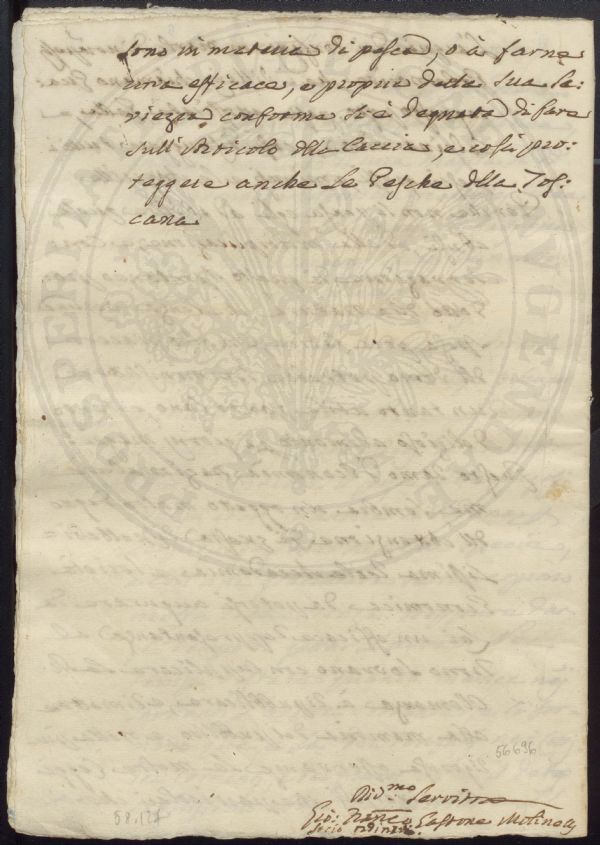 sono in materia di pesca, o à farne
una efficace, e propria della sua Sa:
viezza, conforme si è degnata di fare
sull'Articolo della Caccia, e così pro:
teggere anche le Pesche della Tos:
cana
56696
Servitore
Gio: Gastone
Socio ordin:
58.127